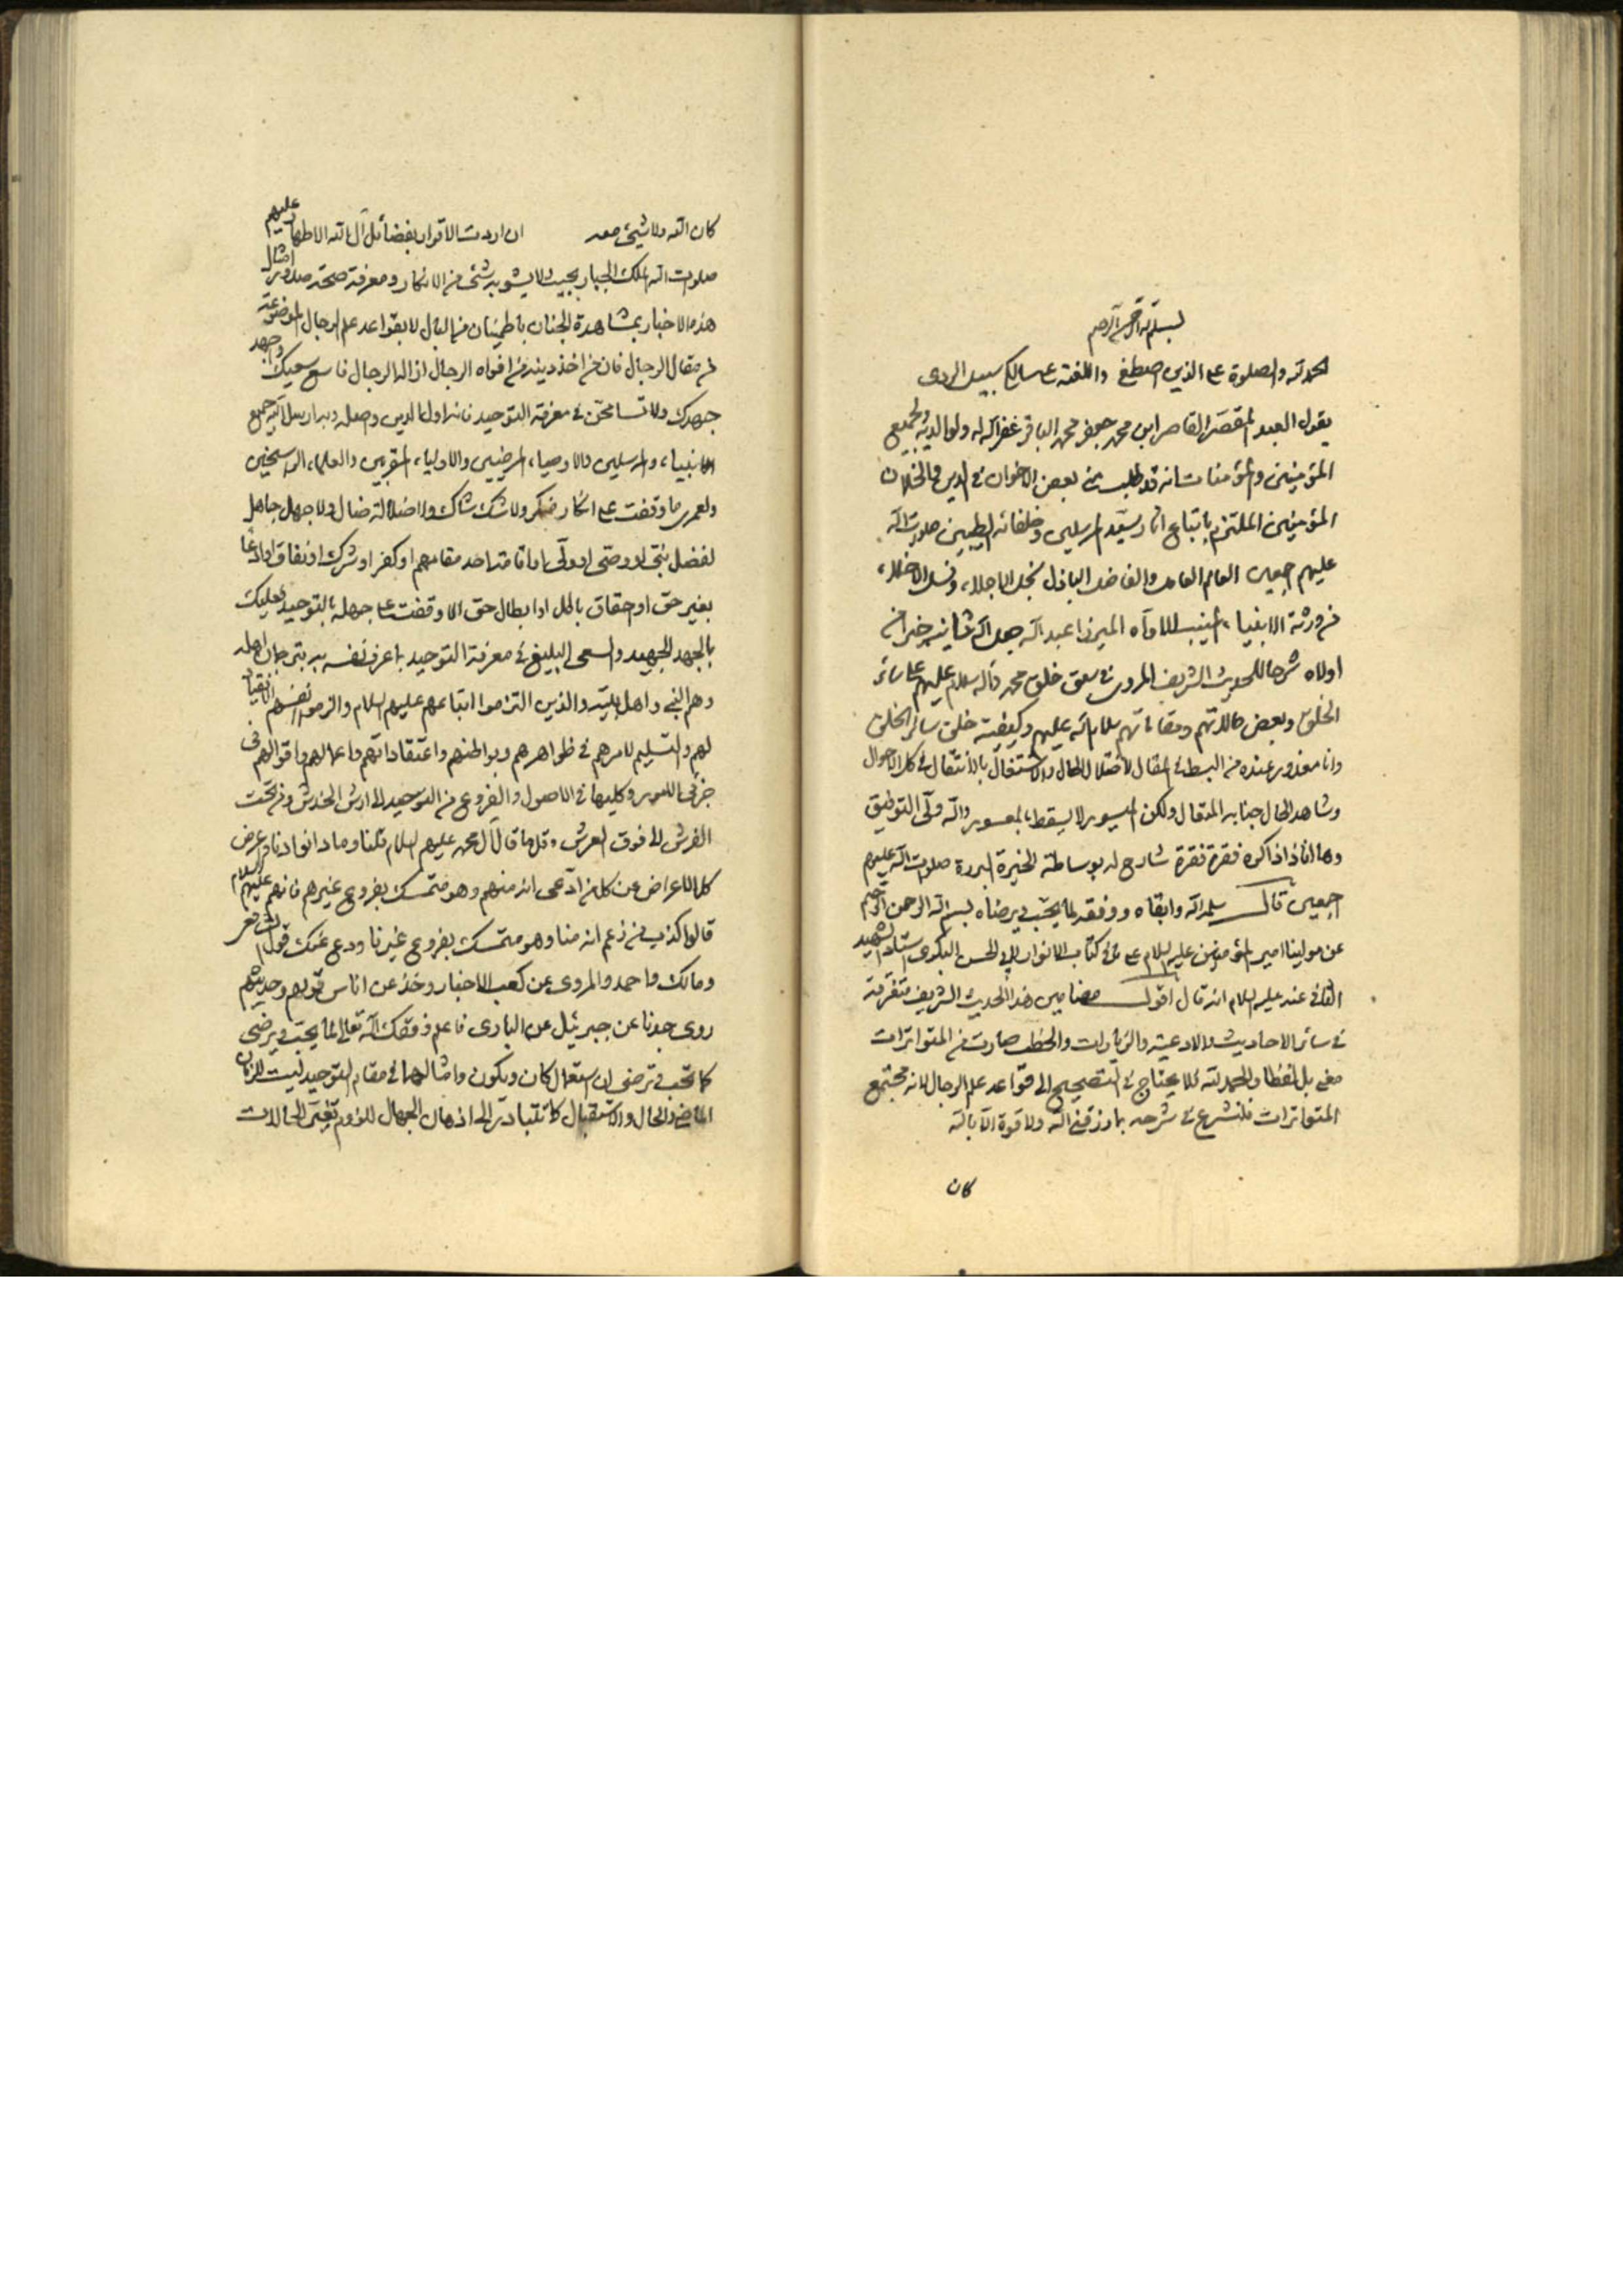 بسم الله الرحمن الرحيم
الحمد لله والصلوة على الذين اصطفى واللعنة على سالك سبيل الردى
يقول العبد المقصر القاصر ابن محمد جعفر محمد الباقر غفر الله له ولوالديه ولجميع
المؤمنين والمؤمنات انه قد طلب مني بعض الاخوان في الدين والخلان
المؤمنين الملتزم باتباع اثار سيد المرسلين وخلفائه الطيبين صلوات الله
عليهم اجمعين العالم العامل والفاضل الباذل نجل الاجلاء ونسل الاخلاء
من ورثة الانبياء المنيب الاواه الميرزا عبد الله جعل الله ثانيه خيرا من
اولاه شرحا للحديث الشريف المروى في سبق خلق محمد وآله سلام عليهم على سائر
الخلق وبعض حالاتهم ومقاماتهم سلام الله عليهم وكيفية خلق سائر الخلق
وانا معذور عنده من البسط في المقال لاختلال الحال والاشتغال بالانتقال في كل الاحوال
وشاهد الحال جنابه المتعال ولكن الميسور لا يسقط بالمعسور والله ولى التوفيق
وها انا ذا اذكره فقرة فقرة شارح له بوساطة الخيرة البررة صلوات الله عليهم
اجمعين قال سلمه الله وابقاه ووفقه لما يحب ويرضاه بسم الله الرحمن الرحيم
عن مولينا امير المؤمنين عليه السلام على ما في كتاب الانوار لابى الحسن البكرى استاد الشهيد
الثانى عنه عليه السلام انه قال اقول مضامين هذا الحديث الشريف متفرقة
في سائر الاحاديث والادعية والزيارات والخطب صارت من المتواترات
معنى بل لفظا والحمد لله فلا يحتاج في التصحيح الى قواعد علم الرجال لانه مجتمع
المتواترات فلنشرع في شرحه بما رزقنى الله ولا قوة الا بالله
كان
كان الله ولا شيئ معه ان اردت الاقرار بفضائل آل الله الاطهار عليهم
صلوات الله الملك الجبار بحيث لا يشوبه شئ من الانكار ومعرفة صحة صدور امثال
هذه الاخبار بمشاهدة الجنان باطمينان من البال لا بقواعد علم الرجال الموضوعة
من مقال الرجال فان من اخذ دينه من افواه الرجال ازاله الرجال فاسع سعيك واجهد
جهدك ولا تسامحن في معرفة التوحيد فانه اول الدين واصله وبه ارسل الله جميع
الانبياء والمرسلين والاوصياء المرضيين والاولياء المقربين والعلماء الراسخين
ولعمرى ما وقفت على انكار منكر ولا شك شاك ولا ضلالة ضال ولا جهل جاهل
لفضل نبى او وصى او ولى او اقامة احد مقامهم او كفر او شرك او نفاق او ادعاء
بغير حق او احقاق باطل او ابطال حق الا وقفت على جهله بالتوحيد فعليك
بالجهد الجهيد والسعى البليغ في معرفة التوحيد بما عرف نفسه به بترجمان اهله
وهم النبى واهل بيته والذين التزموا اتباعهم عليهم السلام والزموا انفسهم انقياد
لهم والتسليم لامرهم في ظواهرهم وبواطنهم واعتقاداتهم واعمالهم واقوالهم في
جزئى الامور وكليها في الاصول والفروع من التوحيد الى ارش الخدش ومن تحت
الفرش الى فوق العرش وقل ما قال آل محمد عليهم السلام قلنا وما دانوا دنا واعرض
كل الاعراض عن كل من ادعى انه منهم وهو متمسك بفروع غيرهم فانهم عليهم السلام
قالوا كذب من زعم انه منا وهو متمسك بفروع غيرنا ودع عنك قول الشافعى
ومالك واحمد والمروى عن كعب الاحبار وخذ عن اناس قولهم وحديثهم
روى جدنا عن جبرئيل عن البارى فاعلم وفقك الله تعالى لما يحب ويرضى
كما تحب وترضى ان استعمال كان ويكون وامثالهما في مقام التوحيد ليست للزمان
الماضى والحال والاستقبال كما تتبادر الى اذهان الجهال للزوم تغير الحالات